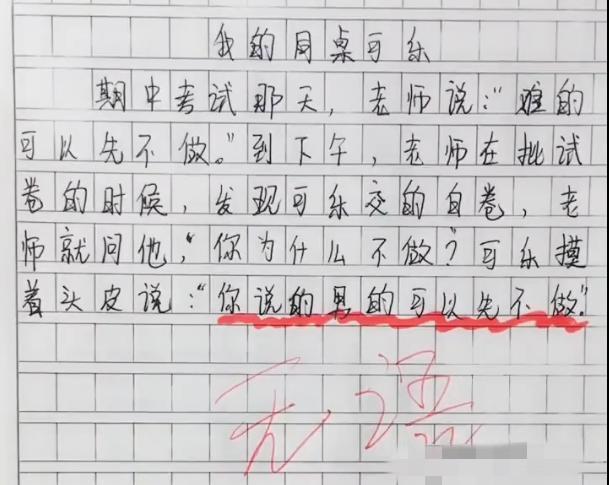 我的同桌可乐
期中考试那天，老师说：“难的
可以先不做。”到下午，老师在批试
卷的时候，发现可乐交的白卷，老
师就问他，“你为什么不做？可乐摸
着头皮说：“你说的男的可以先不做”
无语